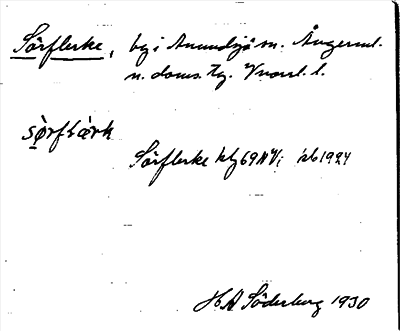 Sörflerke, by i Anundsjö sn. Ångerml.
n. doms. tg. Vnorrl. l.
sörfLärk
Sörflerke ktg 69 NV; kb 1924
H A Söderberg 1930